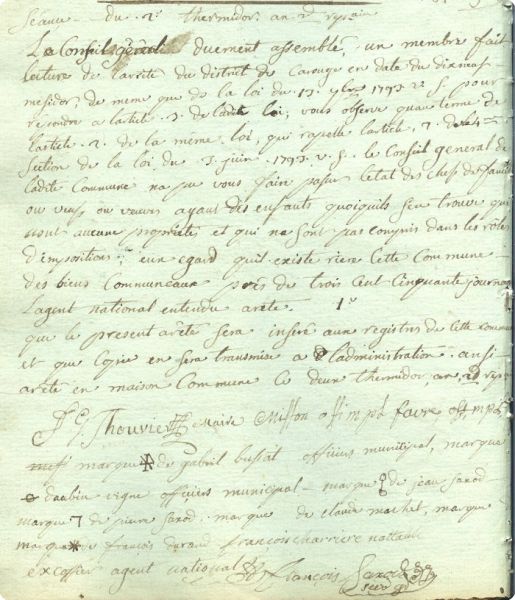 Séance du 2 thermidor an 2 rep.
Le Conseil général duement assemblé, un membre fait
lecture de larrêté du district de Carouge en date du dixneuf
mesidor, de meme que de la loi du 13. 1793 v. s. pour
repondre a larticle 3. de ladite loi, vous observe quau terme de
larticle 2. de la même loi, qui rapelle larticle, 7. de la 4
Section de la loi du 3. juin 1793. v. s. le Conseil general de
ladite Commune na pu vous faire passer letat des chefs de famille
ou veufs ou veuves ayant des enfants quoiquils sen trouve qui
nont aucune propriété et qui ne sont pas compris dans les rôles
d'impositions; eu egard quil existe riere cette Commune
des biens Communeaux près de trois Cent Cinquante journaux
Lagent national entendu arête. 1°
que le present arêté sera inséré aux registres de cette commune
et que Copie en sera transmise a l'administration ansi
arêté en maison Commune Ce deux thermidor, an 2d rep.
Thouvier Maire Misson off. mpl favre off. mpl,
marque de gabriel bussat officiers municipal, marque
daubin vigne officiers municipal marque de jean Sarod
marque de pierre Sarod. marque de claude machet, marque
marque de francois durand francois charriere nottable
excoffier agent national francois Sarod
secr